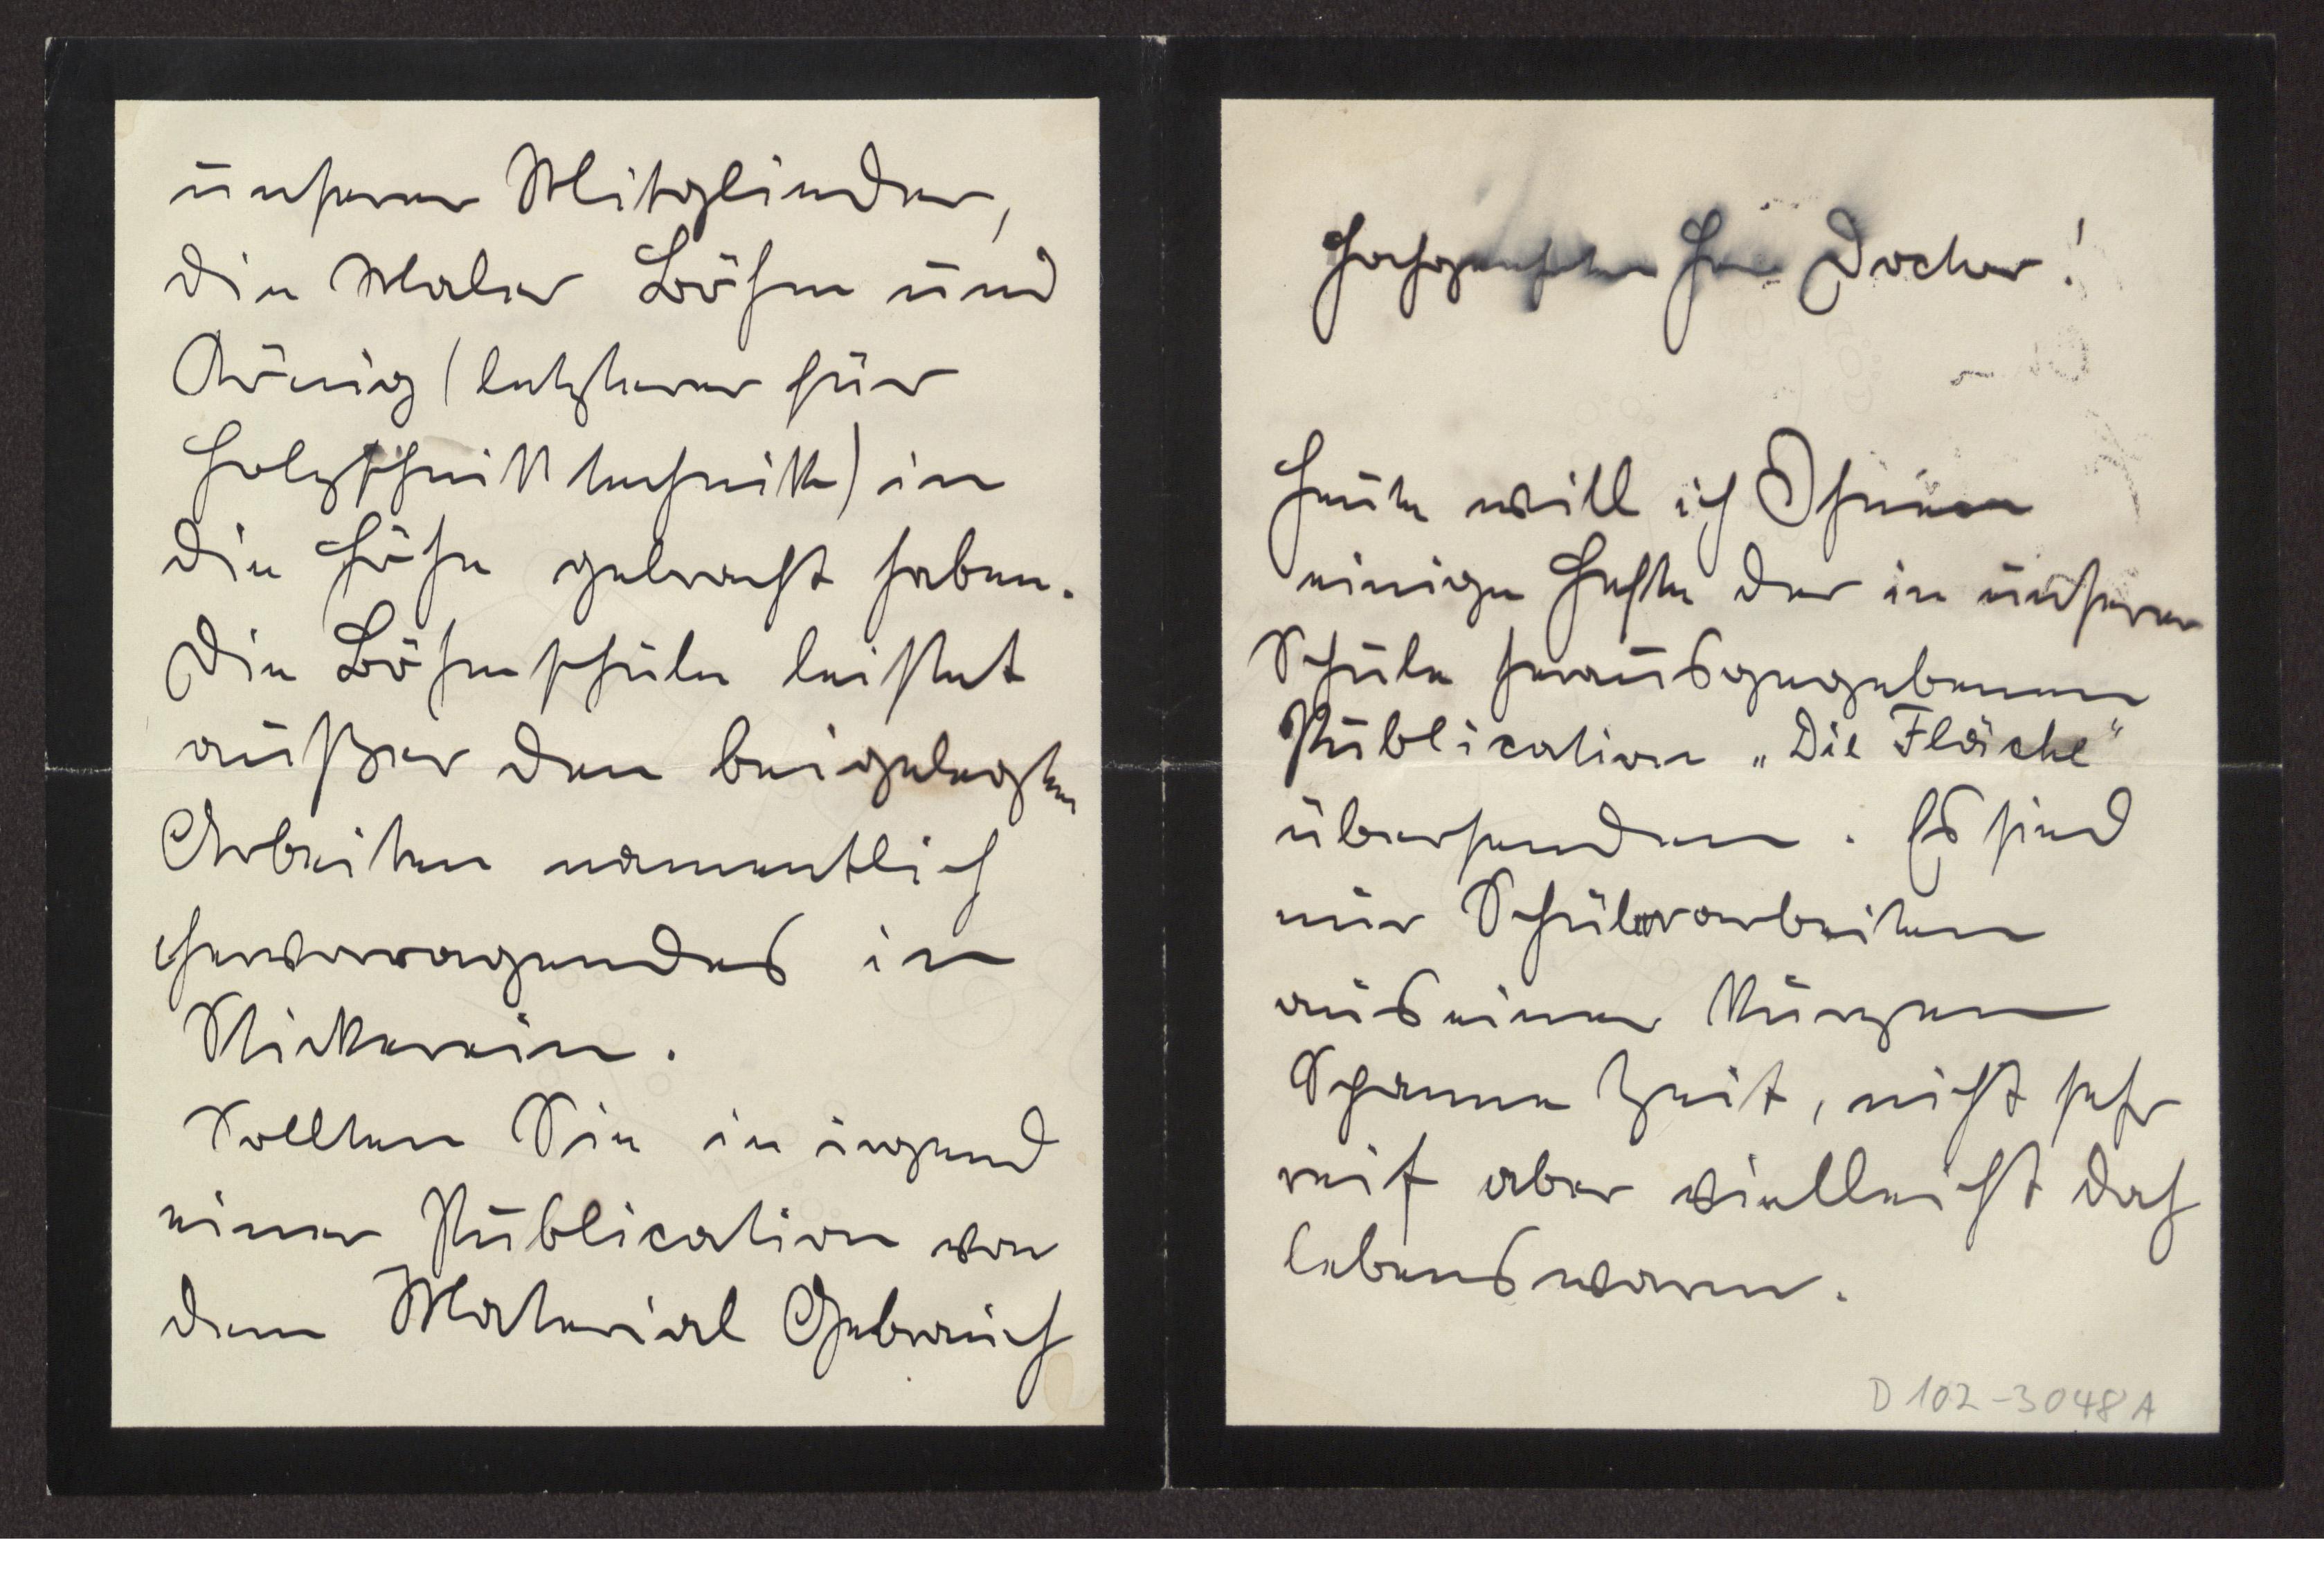 unserer Mitglieder,
die Maler Böhm und
König (letzterer für
Holzschnitttechnik) in
die Höhe gebracht haben.
Die Böhmschule leistet
außer den beigelegten
Arbeiten namentlich
hervorragendes in
Stickerein.
Sollten Sie in irgend
einer Publication von
dem Material Gebrauch
Hochgeehrter Herr Doctor!
Heute will ich Ihnen
einige Hefte der in unserer
Schule herausgegebenen
Publication „Die Fläche“
übersenden. Es sind
nur Schülerarbeiten
aus einer kurzen
Spanne Zeit, nicht sehr
reif aber vielleicht doch
lebenswarm.
D 102-3048 A